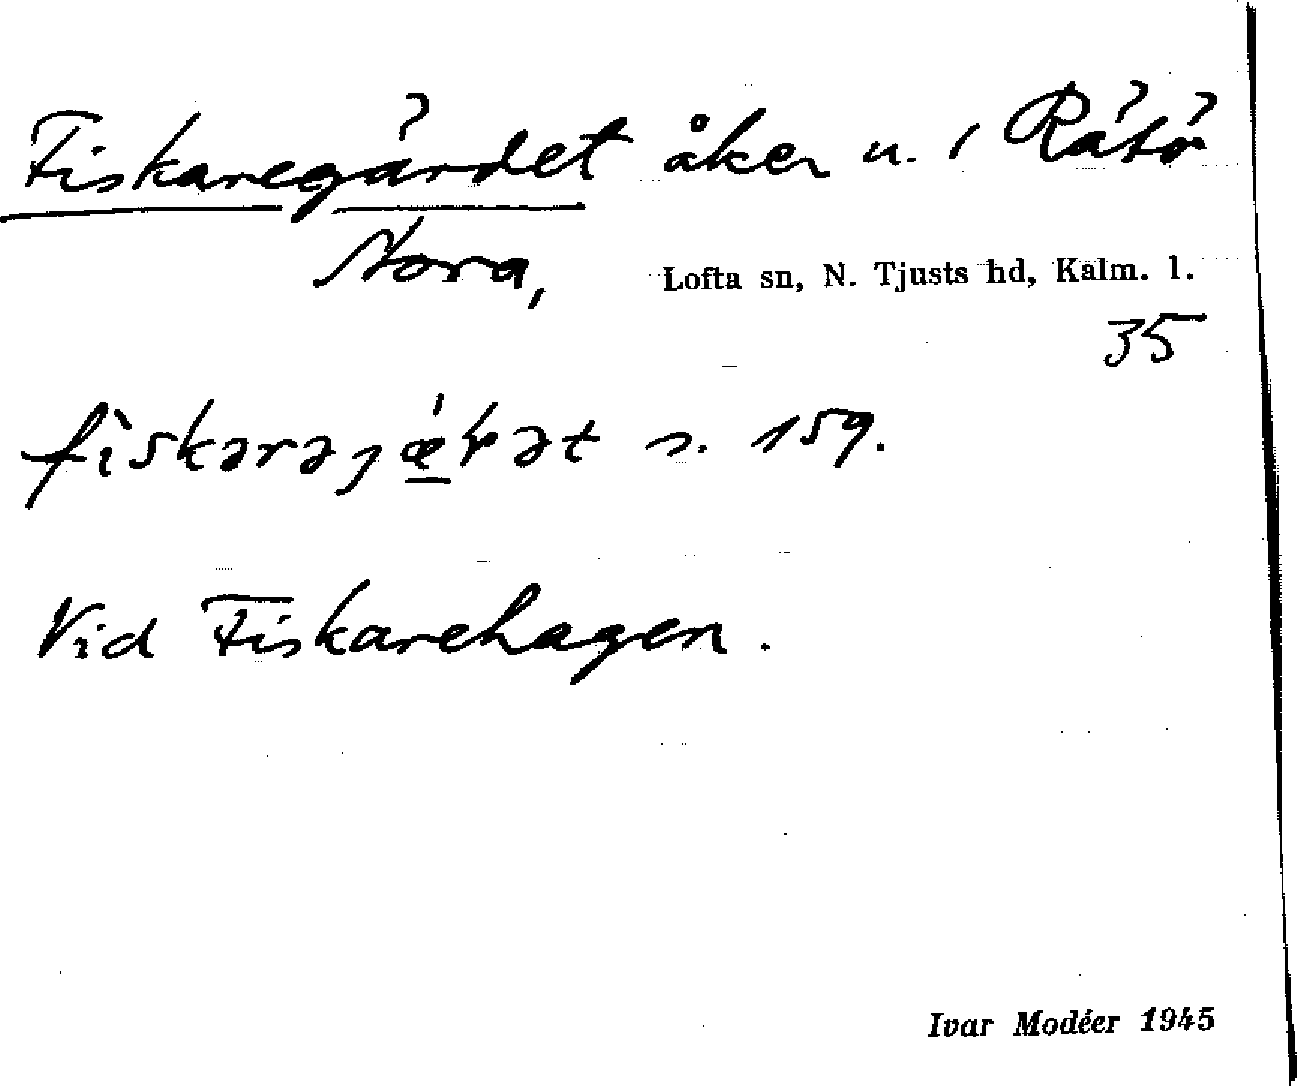 Fiskaregärdet åker u. i Rätö
Nora, Lofta sn, N. Tjusts hd, Kalm. l.
35
s. 159.
Vid Fiskarehagen.
Ivar Modéer 1945